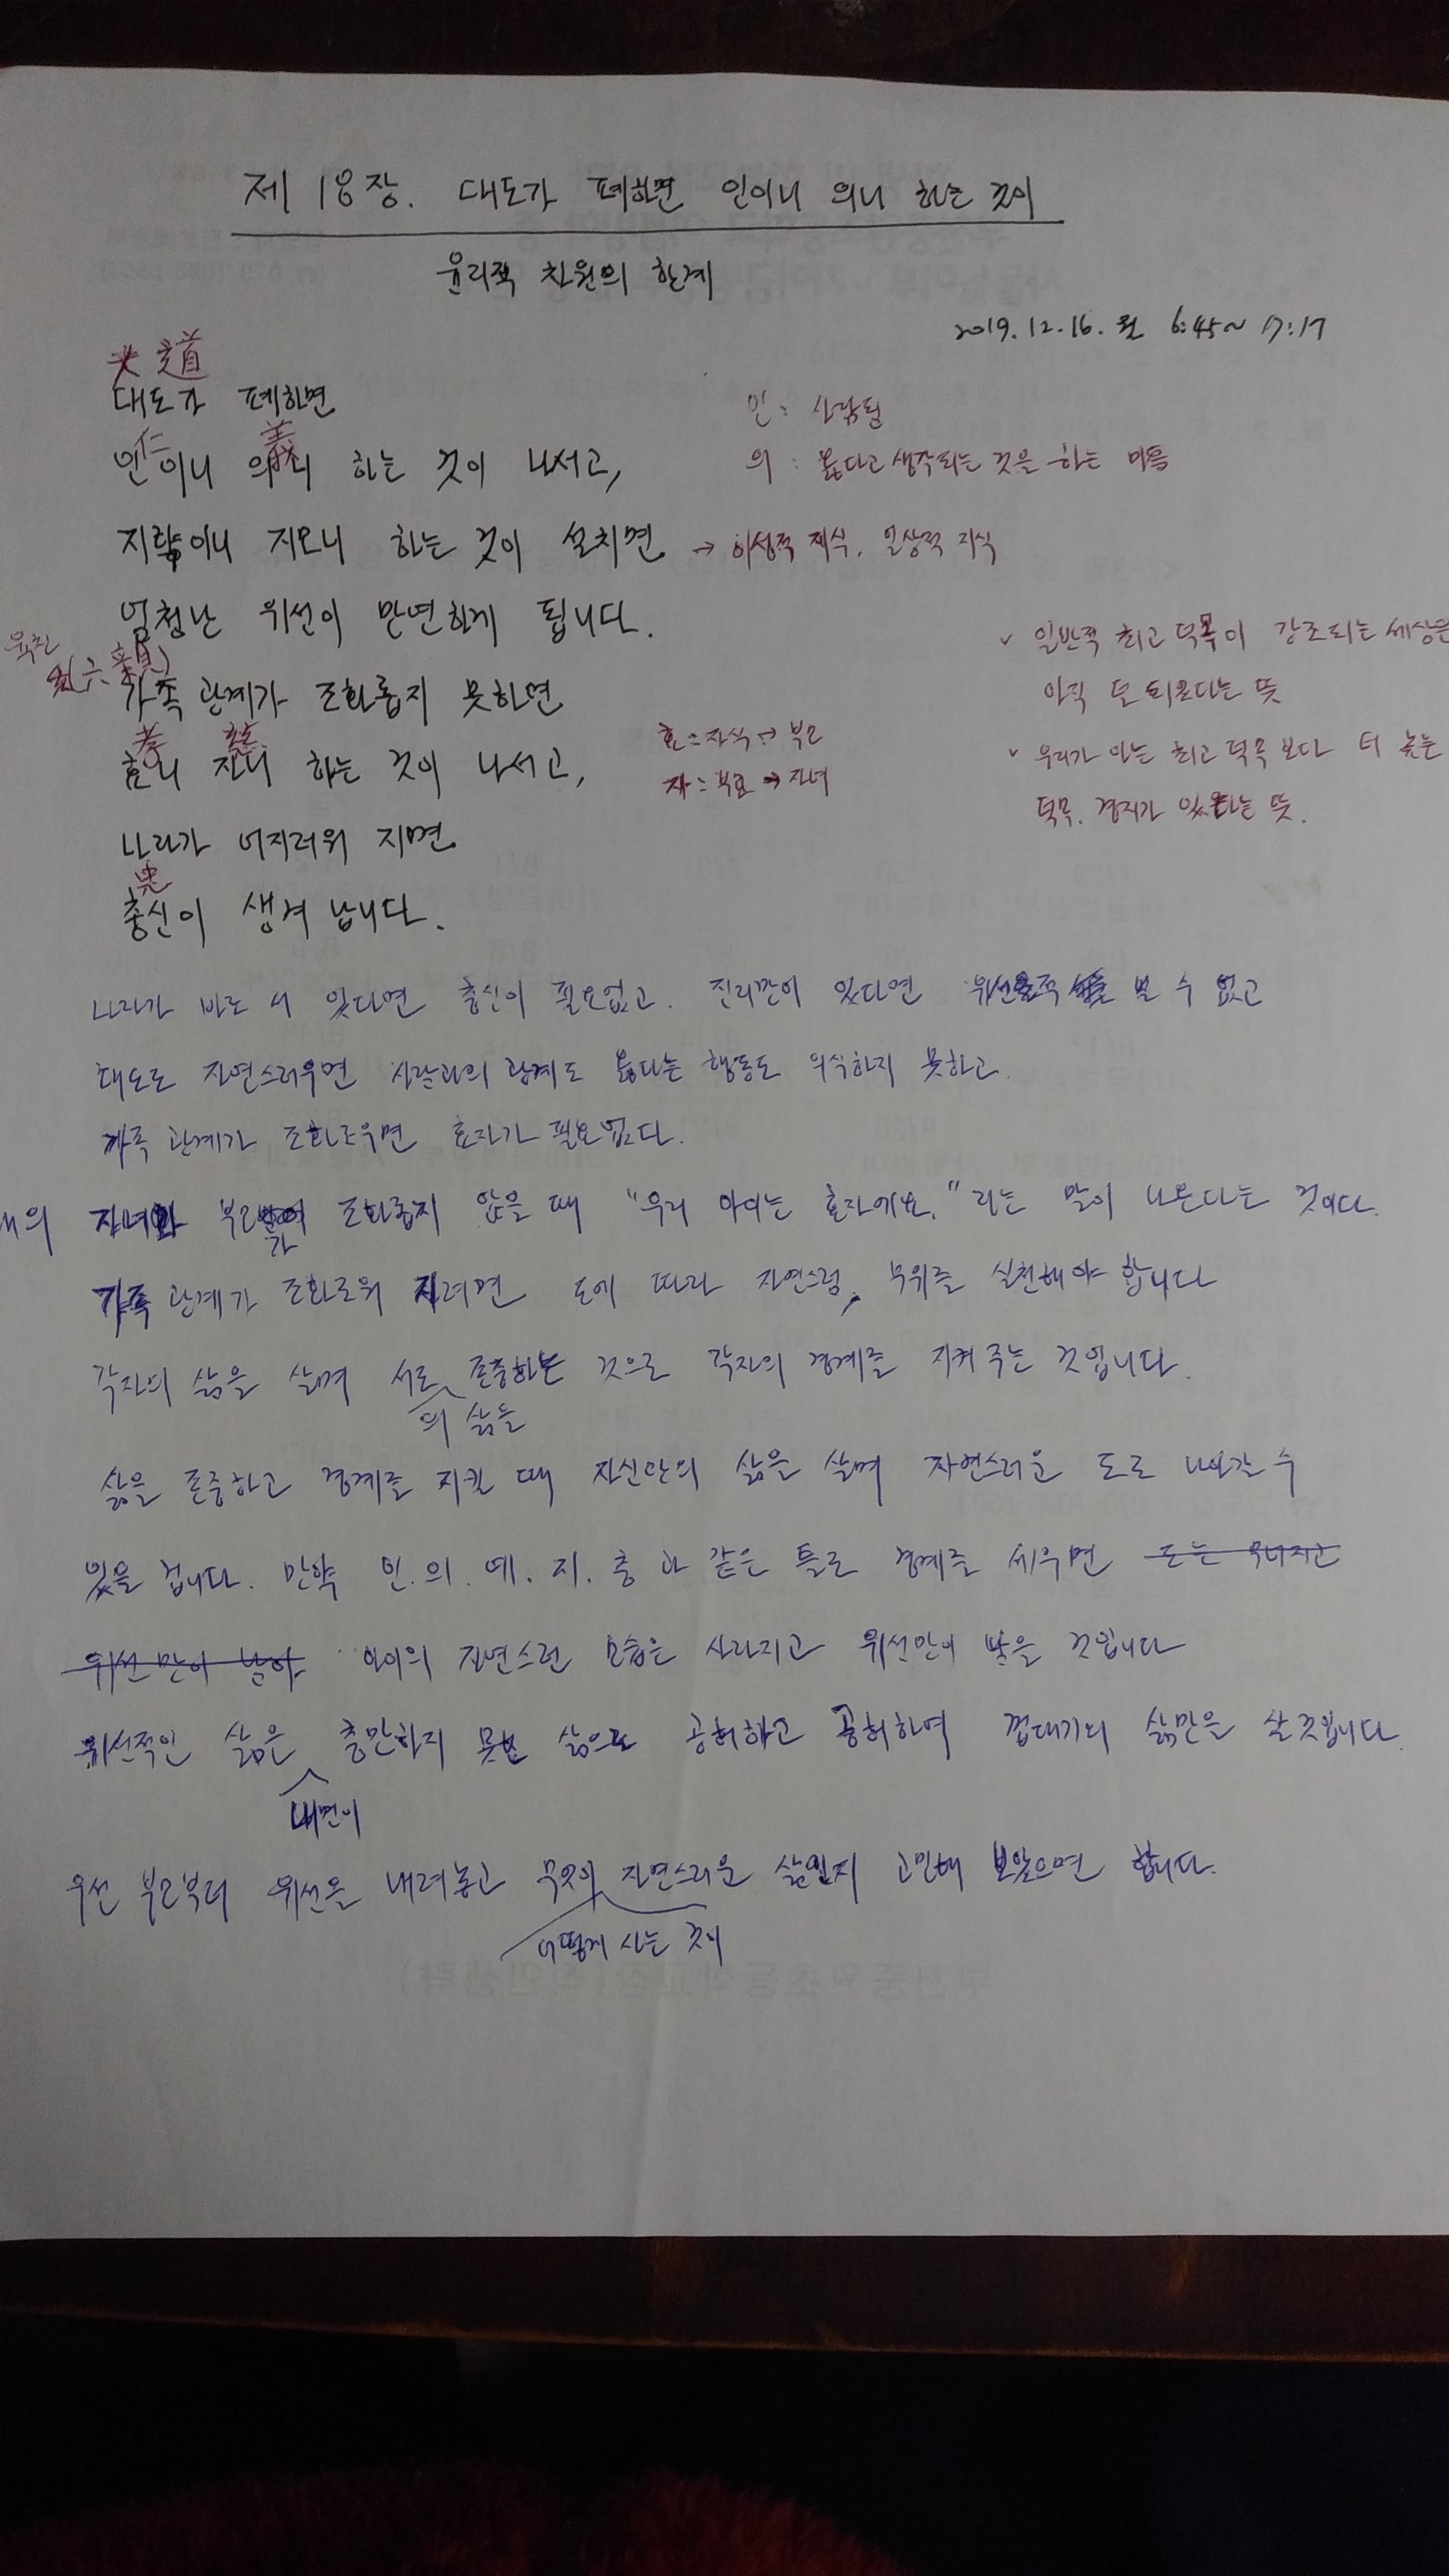 제 18장. 대도가 폐하면 인이니 의니 하는 것이
윤리적 차원의 한계
2019.12.16. 월 6:45~ 7:17
大道
대도가 폐하면
仁 義
인이니 의니 하는 것이 나서고,
인: 사람됨
의: 옳다고 생각되는 것을 하는 마음
지략이니 지모니 하는 것이 설치면 → 이성적 지식, 일상적 지식
엄청난 위선이 만연하게 됩니다.
육친
(六親)
가족 관계가 조화롭지 못하면
孝 慈
효니 자니 하는 것이 나서고,
효: 자식 → 부모
자: 부모 → 자녀
나라가 어지러워 지면
忠
충신이 생겨 납니다.
✓ 일반적 최고 덕목이 강조되는 세상은
아직 덜 되었다는 뜻
✓ 우리가 아는 최고 덕목 보다 더 높은
덕목, 경지가 있다는 뜻.
나라가 바로 서 있다면 충신이 필요없고, 진리만이 있다면 위선 볼 수 없고
대도로 자연스러우면 사람과의 관계도 옳다는 행동도 의식하지 못하고
가족 관계가 조화로우면 효자가 필요없다.
자녀와 부모 조화롭지 않을 때 "우리 아이는 효자에요." 라는 말이 나온다는 것이다.
가
가족 관계가 조화로워 지려면 도에 따라 자연스럼, 무위를 실천해야 합니다
각자의 삶을 살며 서로 존중하는 것으로 각자의 경계를 지켜 주는 것입니다.
의 삶을
삶을 존중하고 경계를 지킬 때 자신만의 삶을 살며 자연스러운 도로 나아갈 수
있을 겁니다. 만약 인.의.예.지.충 과 같은 틀로 경계를 세우면 도는 무너지고
위선만이 남아 아이의 자연스런 모습은 사라지고 위선만이 남을 것입니다
위선적인 삶은 충만하지 못한 삶으로 공허하고 공허하여 껍데기의 삶만을 살 것입니다.
내면이
우선 부모부터 위선을 내려놓고 무엇이 자연스러운 삶인지 고민해 보았으면 합니다.
어떻게 사는 것이